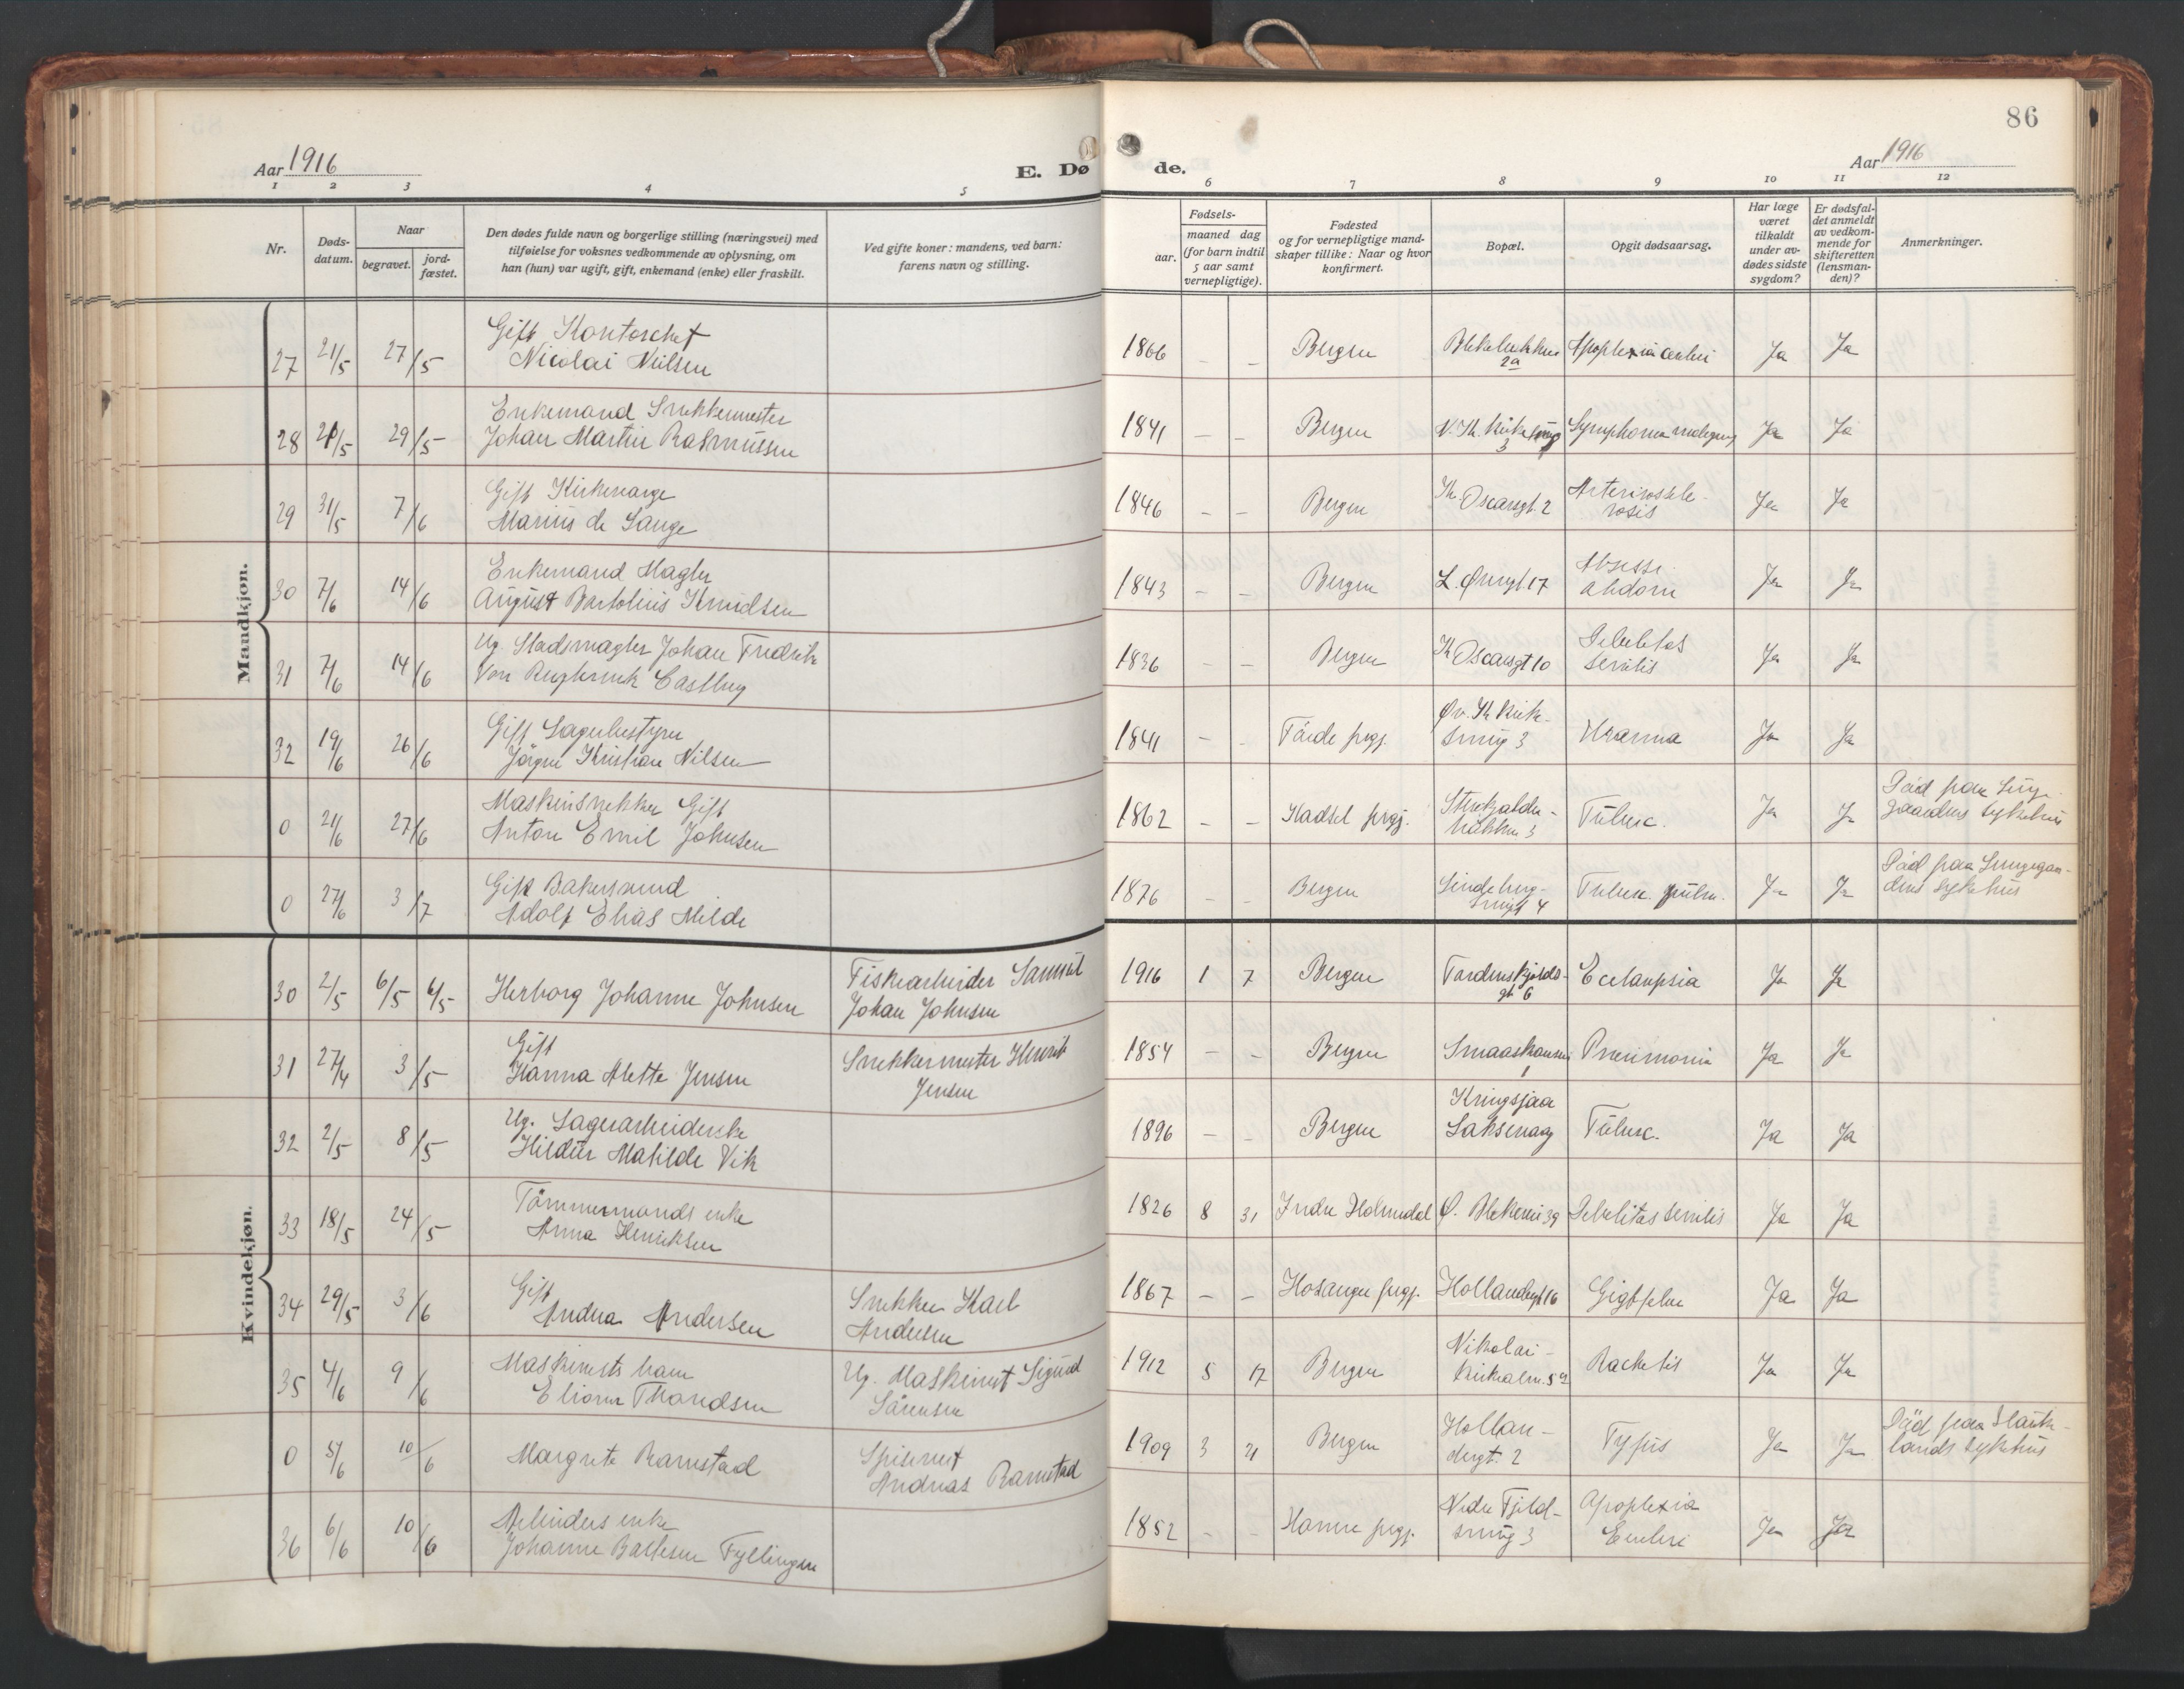 86
Aar 1916
E. Dø
de.
Aar 1916
1 2 3 4 5 6 7 8 9 10 11 12
Nr.
Døds-
datum.
Naar
begravet.
jord-
fæstet.
Den dødes fulde navn og borgerlige stilling (næringsvei) med
tilføielse for voksnes vedkommende av oplysning, om
han (hun) var ugift, gift, enkemand (enke) eller fraskilt.
Ved gifte koner: mandens, ved barn:
farens navn og stilling.
Fødsels-
aar.
maaned dag
(for barn indtil
5 aar samt
vernepligtige).
Fødested
og for vernepligtige mand-
skaper tillike: Naar og hvor
konfirmert.
Bopæl.
Opgit dødsaarsag.
Har læge
været
tilkaldt
under av-
dødes sidste
sygdom?
Er dødsfal-
det anmeldt
av vedkom-
mende for
skifteretten
(lensman-
den)?
Anmerkninger.
Mandkjøn.
27 21/5 27/5 Gift Kontorchef
Nicolai Nielsen
1866 – – Bergen 2a Apoplexia cerebri Ja Ja
28 21/5 29/5 Enkemand Snekkermester
Johan Martin Rasmussen
1841 – – Bergen 3 Ja Ja
29 31/5 7/6 Gift Kirkeverge
Marius de Lange
1846 – – Bergen Oscarsgt. 2 Arterioscle-
rosis Ja Ja
30 7/6 14/6 Enkemand Mægler
August Bartolius Knudsen
1843 – – Bergen L. Øvregt 17 Absess.
abdom Ja Ja
31 7/6 14/6 Ug. Stadsmægler Johan Fredrik
Von Castberg
1836 – – Bergen Oscarsgt 10 Debilitas
senilis Ja Ja
32 19/6 26/6 Gift Lagerbestyrer
Jørgen Kristian Nilsen
1841 – – Førde prgj. Øv. Kirke-
smug 3 Uræmia Ja Ja
0 21/6 27/6 Maskinsnekker Gift
Anton Emil Johnsen
1862 – – Hadsel prgj. 3 Tuberc. Ja Ja Død paa Lunge-
gaardens sykehus
0 27/6 3/7 Gift Bakersvend
Adolf Elias Milde
1876 – – Bergen Lindeberg-
smug 4 Tuberc. pulm. Ja Ja Død paa Lungegaar-
dens sykehus
Kvindekjøn.
30 2/5 6/5 6/5 Herborg Johanne Johnsen Fiskearbeider Samuel
Johan Johnsen
1916 1 7 Bergen Tordenskjolds-
gt 6 Eclampsia Ja Ja
31 27/4 3/5 Gift
Hanna Alette Jensen Snekkermester Henrik
Jensen
1854 – – Bergen 1 Pneumonia Ja Ja
32 2/5 8/5 Ug. Lagerarbeiderske
Hildur Matilde Vik
1896 – – Bergen Kringsjaa
Laksevaag Tuberc. Ja Ja
33 18/5 24/5 Tømmermands enke
Anna Henriksen
1826 8 31 Indre Holmedal Ø. Blekevei 39 Debilitas senilis Ja Ja
34 29/5 3/6 Gift
Andrea Andersen Snekker Karl
Andersen
1867 – – Hosanger prgj. Hollendergt 16 Gigtfeber Ja Ja
35 4/6 9/6 Maskinists barn
Thorndsen Ug. Maskinist Sigurd
Sørensen
1912 5 17 Bergen Nikolai-
kirkealm. 5a Rachitis Ja Ja
0 5/6 10/6 Margrete Ramstad
Andreas Ramstad
1909 3 21 Bergen Hollen-
dergt. 2 Tyfus Ja Ja Død paa Hauke-
lands sykehus
36 6/6 10/6 Arbeiders enke
Johanne Fyllingen
1852 – – Hamre prgj. Nedre Fjeld-
smug 3 Apoplexia
Cerebri Ja Ja